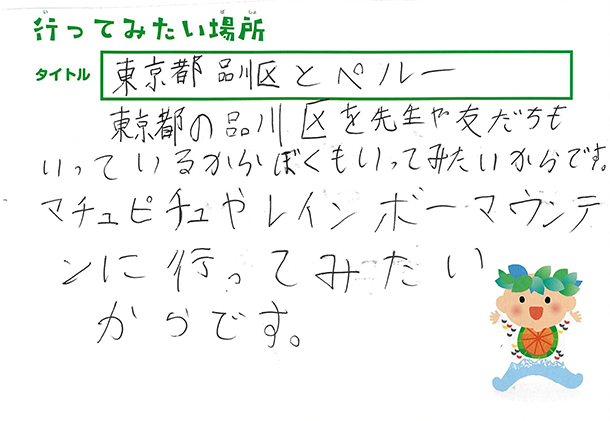 行ってみたい場所
タイトル 東京都品川区とペルー
東京都の品川区を先生や友だちも
いっているからぼくもいってみたいからです。
マチュピチュやレインボーマウンテ
ンに行ってみたい
からです。